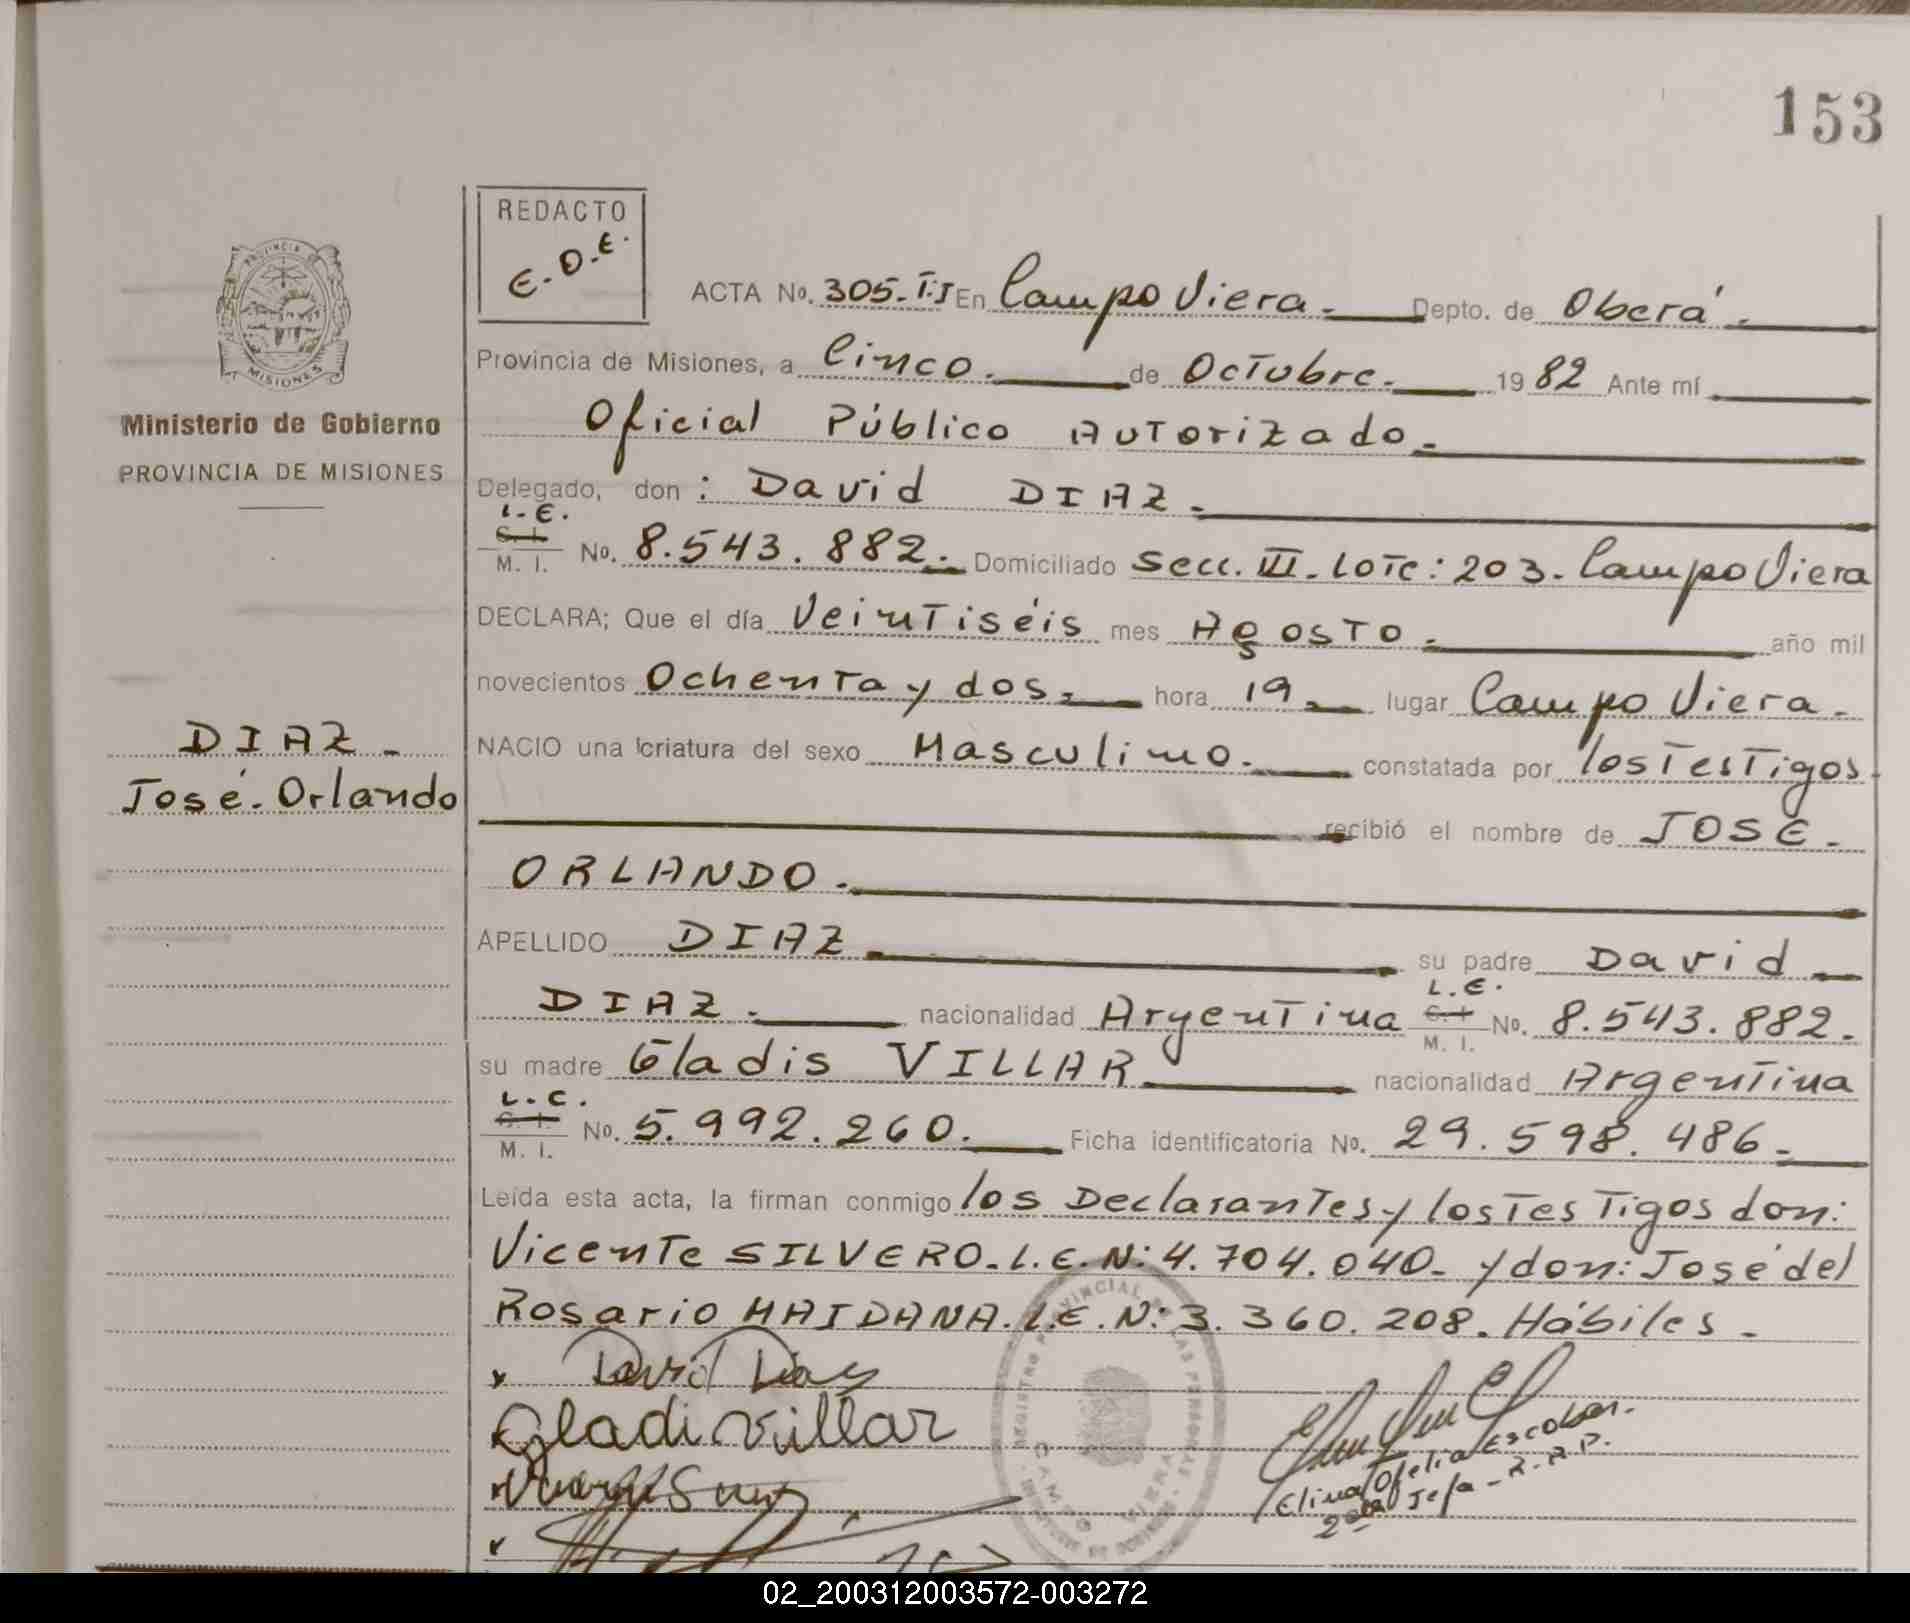 153
REDACTO
E.O.E.
ACTA No. 305.T:I En Campo Viera. Depto. de Oberá.
Provincia de Misiones, a Cinco. de Octubre. 1982 Ante mí
Oficial Público Autorizado.
Delegado, don: David DIAZ.
L.E.
C. I.
M. I. No. 8.543.882. Domiciliado Secc. III. Lote: 203. Campo Viera
DECLARA; Que el día Veintiséis mes Agosto. año mil
novecientos Ochenta y dos. hora 19 lugar Campo Viera.
NACIO una criatura del sexo Masculino. constatada por los Testigos
recibió el nombre de JOSE.
ORLANDO.
APELLIDO DIAZ su padre David
L.E.
DIAZ. nacionalidad Argentina C. I. M. I. No. 8.543.882.
su madre Gladis VILLAR nacionalidad Argentina
L.C.
C. I.
M. I. No. 5.992.260. Ficha identificatoria No. 29.598.486.
Leída esta acta, la firman conmigo los Declarantes y los Testigos don:
Vicente SILVERO. L.E.N: 4.704.040. y don: José del
Rosario MAIDANA. L.E.N: 3.360.208. Hábiles.
David Diaz
Gladi Villar
Elina Ofelia Escobar.
2da Jefa - R.R.P.
REGISTRO PROVINCIAL DE LAS PERSONAS
CAMPO VIERA
PROVINCIA DE
MISIONES
Ministerio de Gobierno
PROVINCIA DE MISIONES
DIAZ.
José. Orlando
02_200312003572-003272